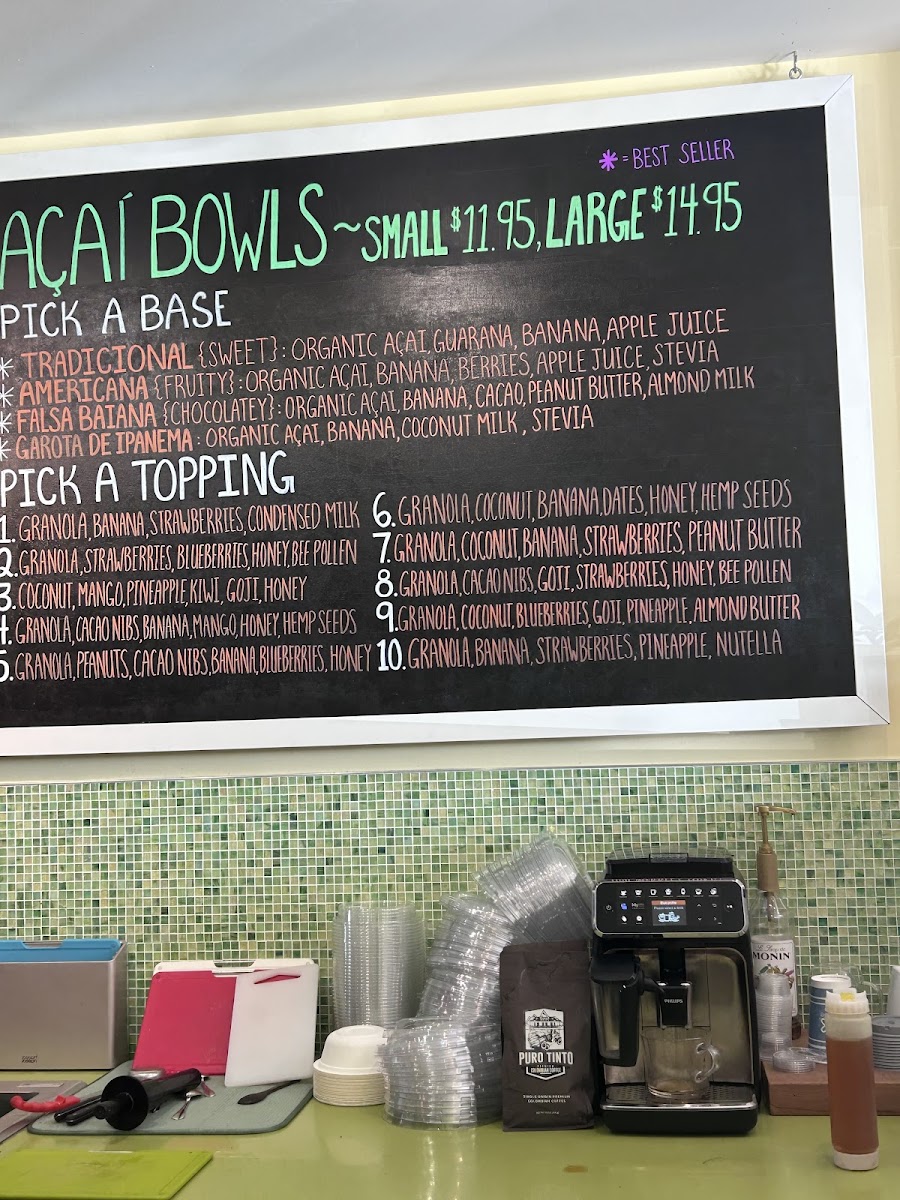 * = BEST SELLER
AÇAÍ BOWLS ~ SMALL $11.95, LARGE $14.95
PICK A BASE
* TRADICIONAL {SWEET}: ORGANIC AÇAI, GUARANA, BANANA, APPLE JUICE
* AMERICANA {FRUITY}: ORGANIC AÇAI, BANANA, BERRIES, APPLE JUICE, STEVIA
* FALSA BAIANA {CHOCOLATEY}: ORGANIC AÇAI, BANANA, CACAO, PEANUT BUTTER, ALMOND MILK
* GAROTA DE IPANEMA: ORGANIC AÇAI, BANANA, COCONUT MILK, STEVIA
PICK A TOPPING
1. GRANOLA, BANANA, STRAWBERRIES, CONDENSED MILK
2. GRANOLA, STRAWBERRIES, BLUEBERRIES, HONEY, BEE POLLEN
3. COCONUT, MANGO, PINEAPPLE, KIWI, GOJI, HONEY
4. GRANOLA, CACAO NIBS, BANANA, MANGO, HONEY, HEMP SEEDS
5. GRANOLA, PEANUTS, CACAO NIBS, BANANA, BLUEBERRIES, HONEY
6. GRANOLA, COCONUT, BANANA, DATES, HONEY, HEMP SEEDS
7. GRANOLA, COCONUT, BANANA, STRAWBERRIES, PEANUT BUTTER
8. GRANOLA, CACAO NIBS, GOJI, STRAWBERRIES, HONEY, BEE POLLEN
9. GRANOLA, COCONUT, BLUEBERRIES, GOJI, PINEAPPLE, ALMOND BUTTER
10. GRANOLA, BANANA, STRAWBERRIES, PINEAPPLE, NUTELLA
PURO TINTO
COLOMBIAN COFFEE
PHILIPS
MONIN